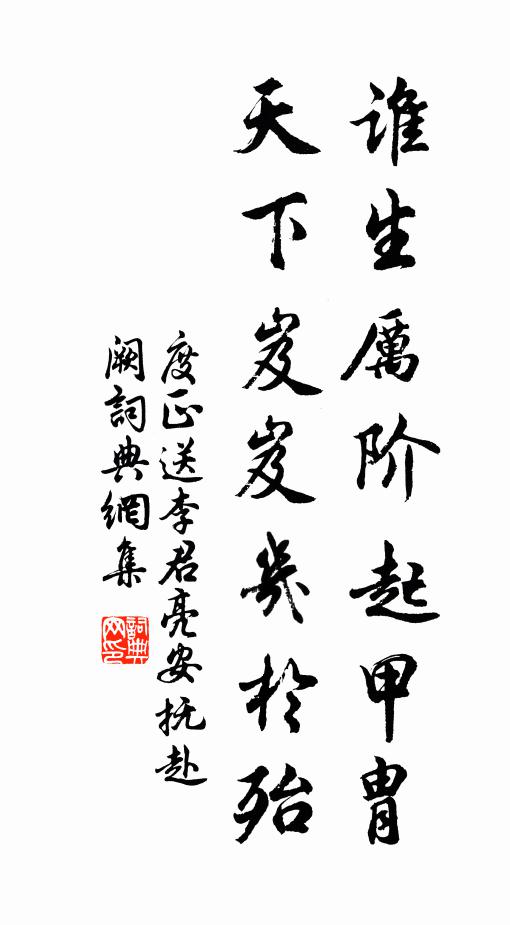 谁生厲阶起甲胄
天下岌岌幾於殆
度正送李君亮安抚赴
阙詞典網集
詞典网印